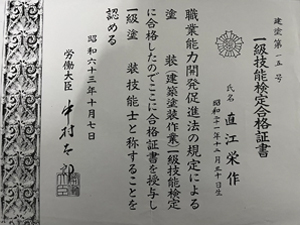 建塗第一五号
一級技能検定合格証書
氏名 直江栄作
昭和二十一年十二月三十日生
職業能力開発促進法の規定による
塗 装(建築塗装作業)一級技能検定
に合格したのでここに合格証書を授与し
一級 塗 装技能士と称することを
認める
昭和六十三年十月七日
労働大臣 中村太郎